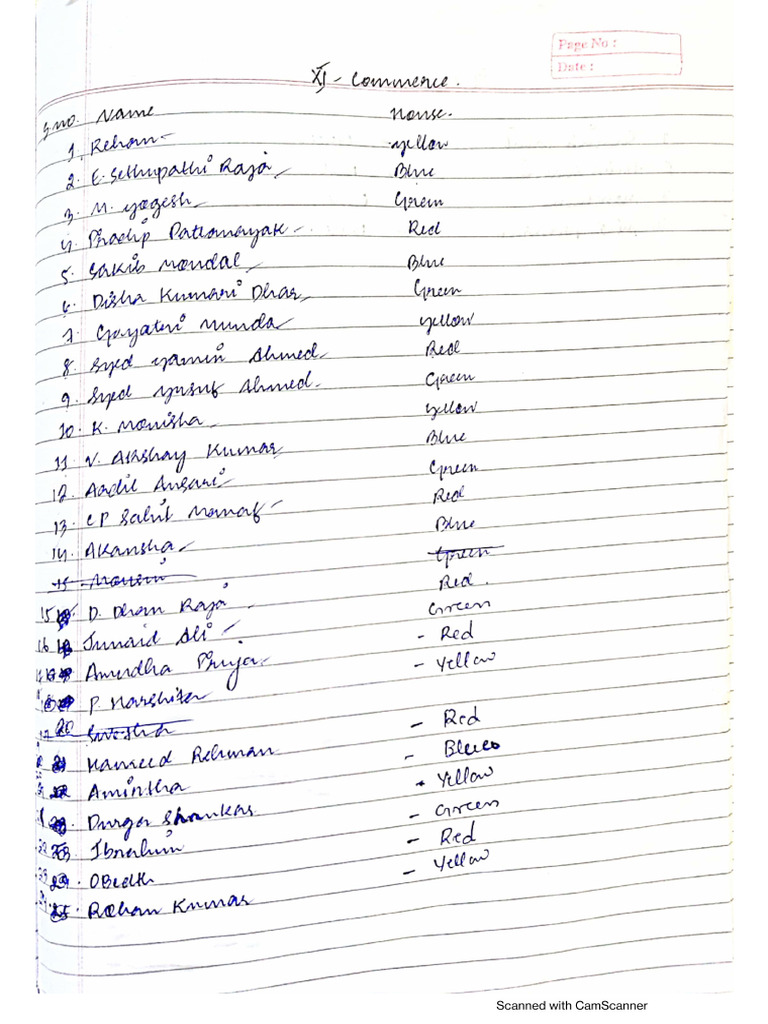 Page No :
Date :
XI - Commerce.
S.no. Name House.
1. Rehan yellow
2. E. Sethupathi Raja Blue
3. M. yogesh Green
4. Pradip Pattanayak Red
5. Sakib Mondal Blue
6. Disha Kumari Dhar Green
7. Gayatri Munda yellow
8. Syed yamin Ahmed Red
9. Syed yusuf Ahmed. Green
10. K. Monisha yellow
11. V. Akshay Kumar Blue
12. Aadil Ansari Green
13. CP Sahil Red
14. Akansha Blue
15. Green
15 D. Dhan Raja Red.
16 Junaid Ali Green
Anurdha Priya - Red
P. Harshita - Yellow
20
Hameed Rehman - Red
Amintha - Blue
Durga Shankar - Yellow
Ibrahim - Green
Obedth - Red
Rohan Kumar - Yellow
Scanned with CamScanner